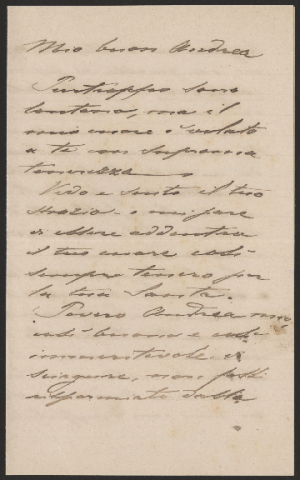 Mio buon Andrea
Purtroppo sono
lontana, ma il
mio cuore è volato
a te con suprema
tenerezza
Vedo e sento il tuo
strazio e mi pare
d'essere addentro a
il tuo cuore così
sempre tenero per
la tua Santa.
Povero Andrea mio
così buono e così
immeritevole di
sciagure, non fosti
risparmiato dalla